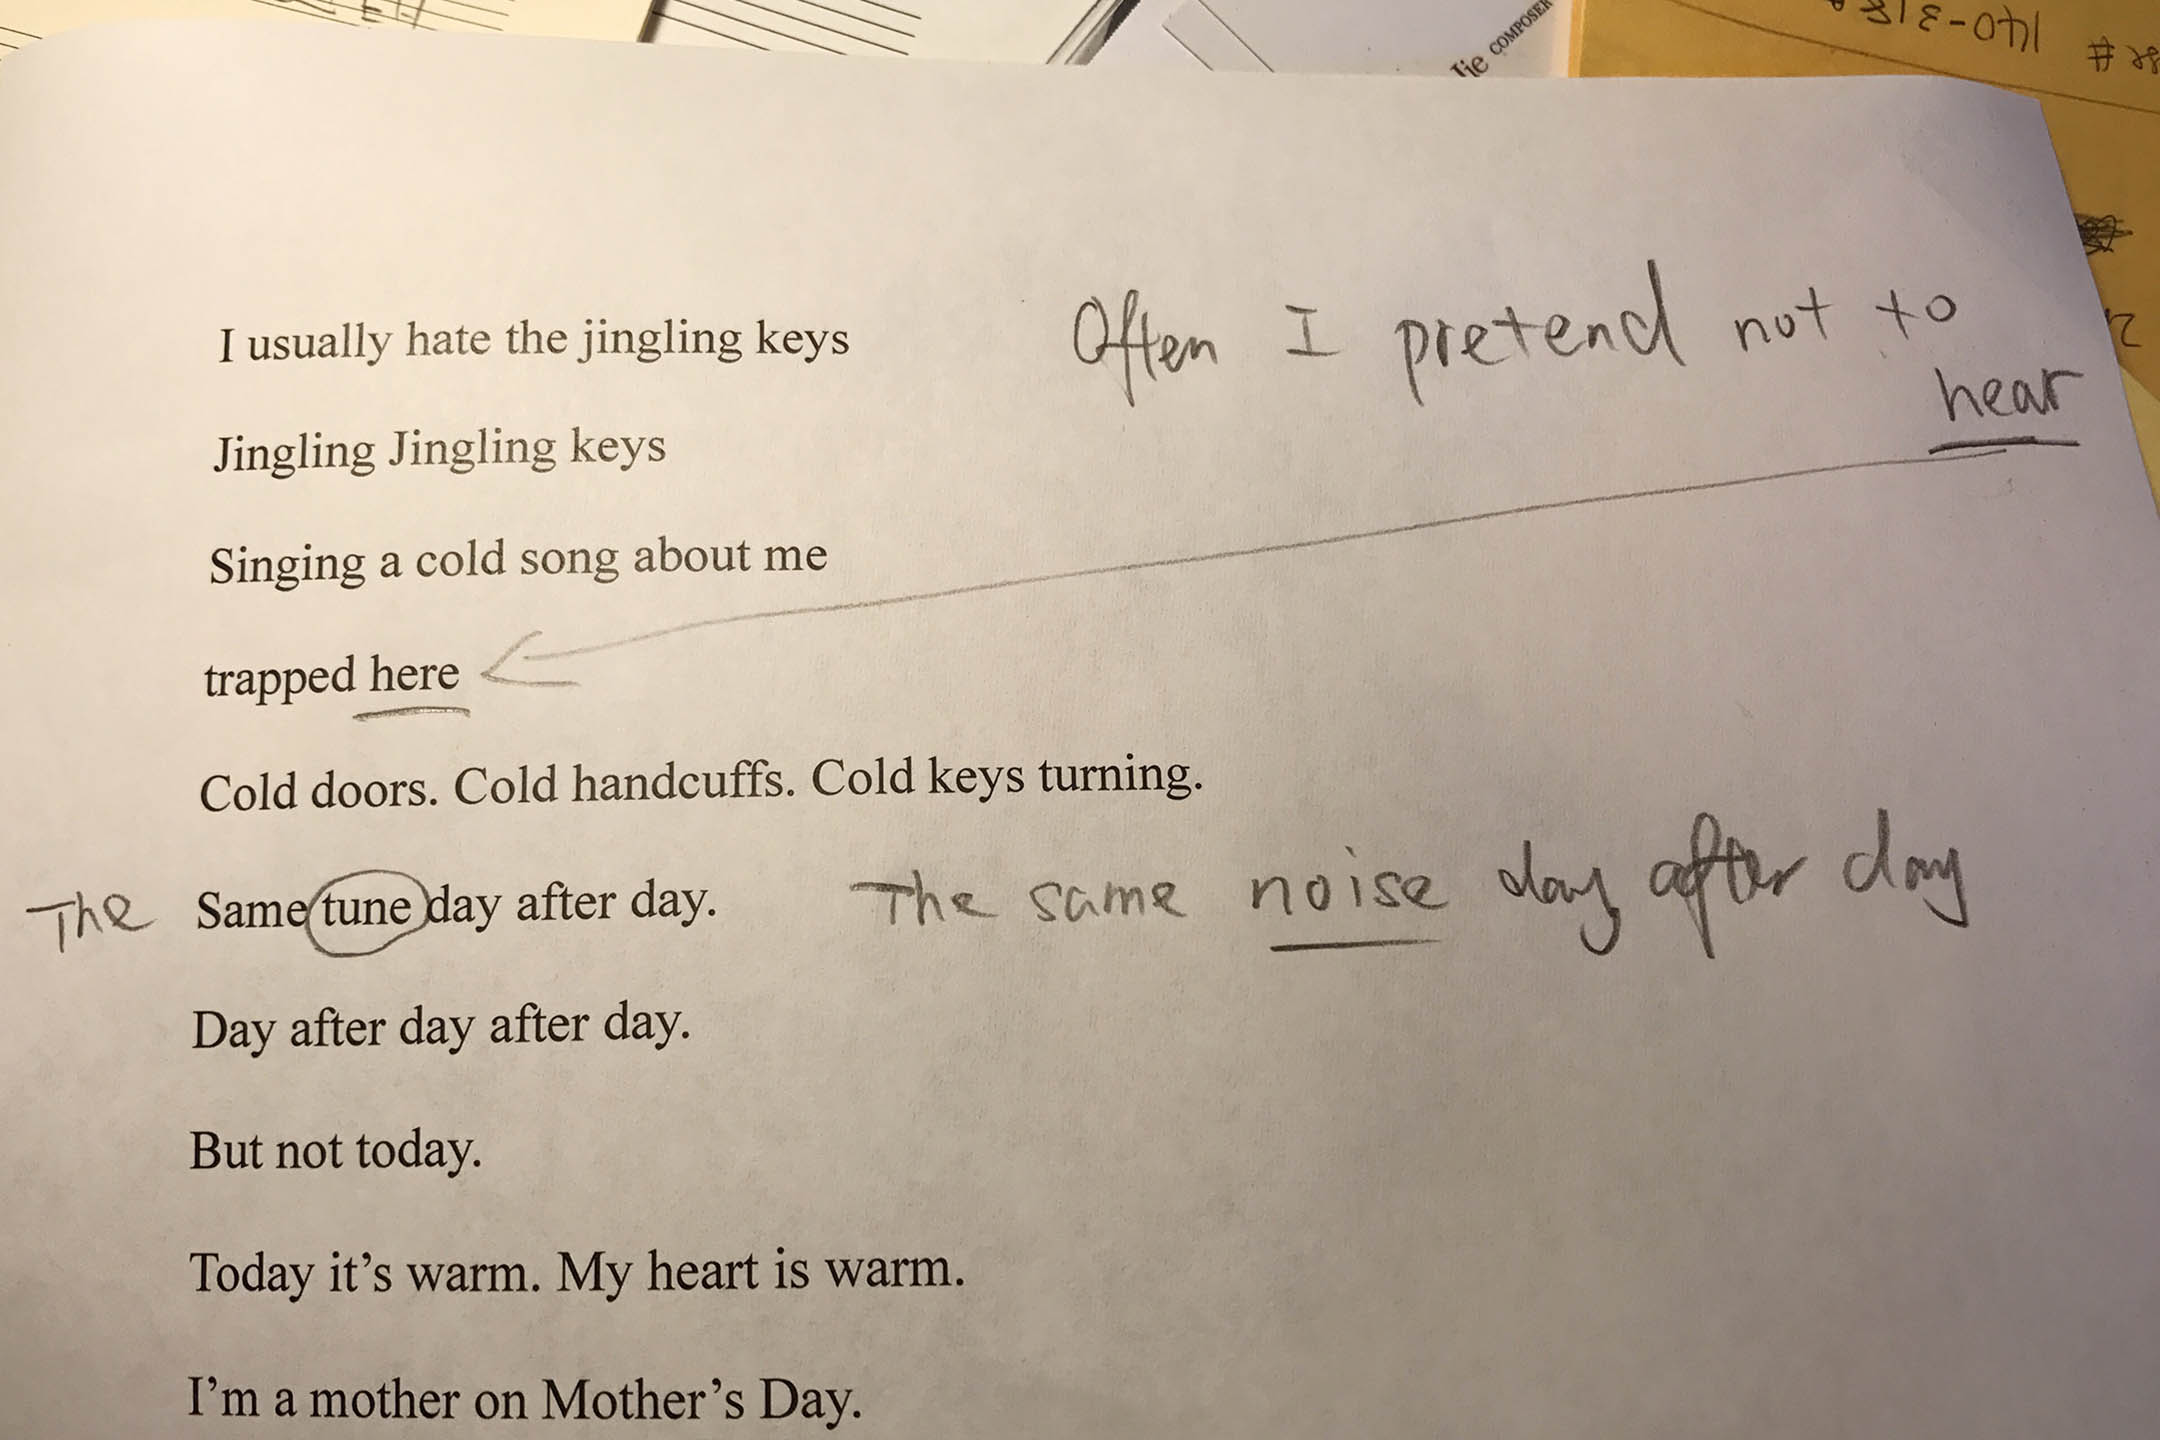 Jie COMPOSER
140-318
#
I usually hate the jingling keys
Often I pretend not to
hear
Jingling Jingling keys
Singing a cold song about me
trapped here
Cold doors. Cold handcuffs. Cold keys turning.
The Same tune day after day.
The same noise day after day
Day after day after day.
But not today.
Today it’s warm. My heart is warm.
I’m a mother on Mother’s Day.